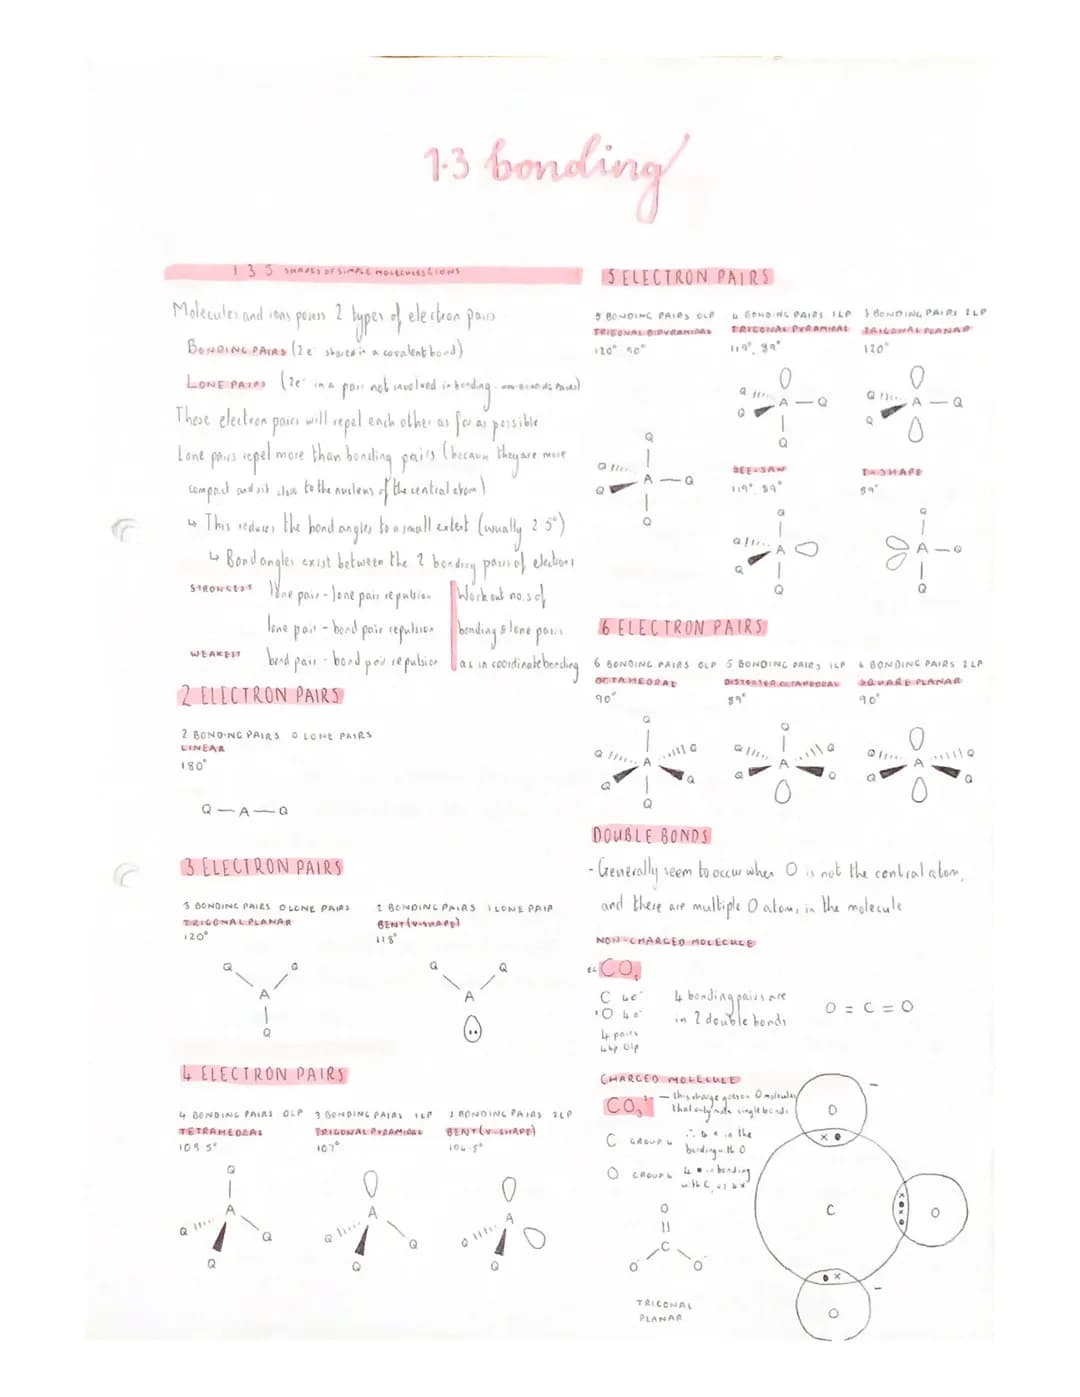 1.3 bonding
1 3 5 SHAPES OF SIMPLE MOLECULES & IONS
Molecules and ions posess 2 types of electron pairs
BONDING PAIRS (2e⁻ shared in a covalent bond)
LONE PAIRS (2e⁻ in a pair not involved in bonding - NON-BONDING PAIRS)
These electron pairs will repel each other as far as possible
Lone pairs repel more than bonding pairs (because they are more
compact and sit close to the nucleus of the central atom)
↳ This reduces the bond angles to a small extent (usually 2.5°)
↳ Bond angles exist between the 2 bonding pairs of electrons
STRONGEST lone pair - lone pair repulsion
lone pair - bond pair repulsion
WEAKEST bond pair - bond pair repulsion
Work out no.s of
bonding & lone pairs
as in coordinate bonding
2 ELECTRON PAIRS
2 BONDING PAIRS 0 LONE PAIRS
LINEAR
180°
Q — A — Q
3 ELECTRON PAIRS
3 BONDING PAIRS 0 LONE PAIRS
TRIGONAL PLANAR
120°
Q Q
A
Q
2 BONDING PAIRS 1 LONE PAIR
BENT (V-SHAPE)
118°
Q Q
A
4 ELECTRON PAIRS
4 BONDING PAIRS 0LP
TETRAHEDRAL
109.5°
Q
A
Q Q
Q
3 BONDING PAIRS 1LP
TRIGONAL PYRAMIDAL
107°
A
Q Q
Q
2 BONDING PAIRS 2LP
BENT (V-SHAPE)
104.5°
A
Q
Q
5 ELECTRON PAIRS
5 BONDING PAIRS 0LP
TRIGONAL BIPYRAMIDAL
120° 90°
Q
Q A — Q
Q
Q
4 BONDING PAIRS 1LP
TRIGONAL PYRAMIDAL
119°, 89°
Q A — Q
Q
Q
SEE-SAW
119°, 89°
Q
Q A
Q
Q
3 BONDING PAIRS 2LP
TRIGONAL PLANAR
120°
Q A — Q
Q
T-SHAPE
89°
Q
A — Q
Q
6 ELECTRON PAIRS
6 BONDING PAIRS 0LP
OCTAHEDRAL
90°
Q
Q A Q
Q Q
Q
5 BONDING PAIRS 1LP
DISTORTED OCTAHEDRAL
89°
Q
Q A Q
Q Q
4 BONDING PAIRS 2LP
SQUARE PLANAR
90°
Q A Q
Q Q
DOUBLE BONDS
- Generally seem to occur when O is not the central atom,
and there are multiple O atoms in the molecule
NON-CHARGED MOLECULE
CO₂
C 4e⁻
O 4e⁻
4 pairs
4bp 0lp
4 bonding pairs are
in 2 double bonds
O = C = O
CHARGED MOLECULE
CO₃²⁻ — this charge goes on O molecules
that only make single bonds
C GROUP 4 ∴ 4 x in the
bonding with O
O GROUP 6 4 • in bonding
with C, as 4x
O
C
O⁻ O⁻
TRIGONAL
PLANAR
O ⁻
C O
O ⁻